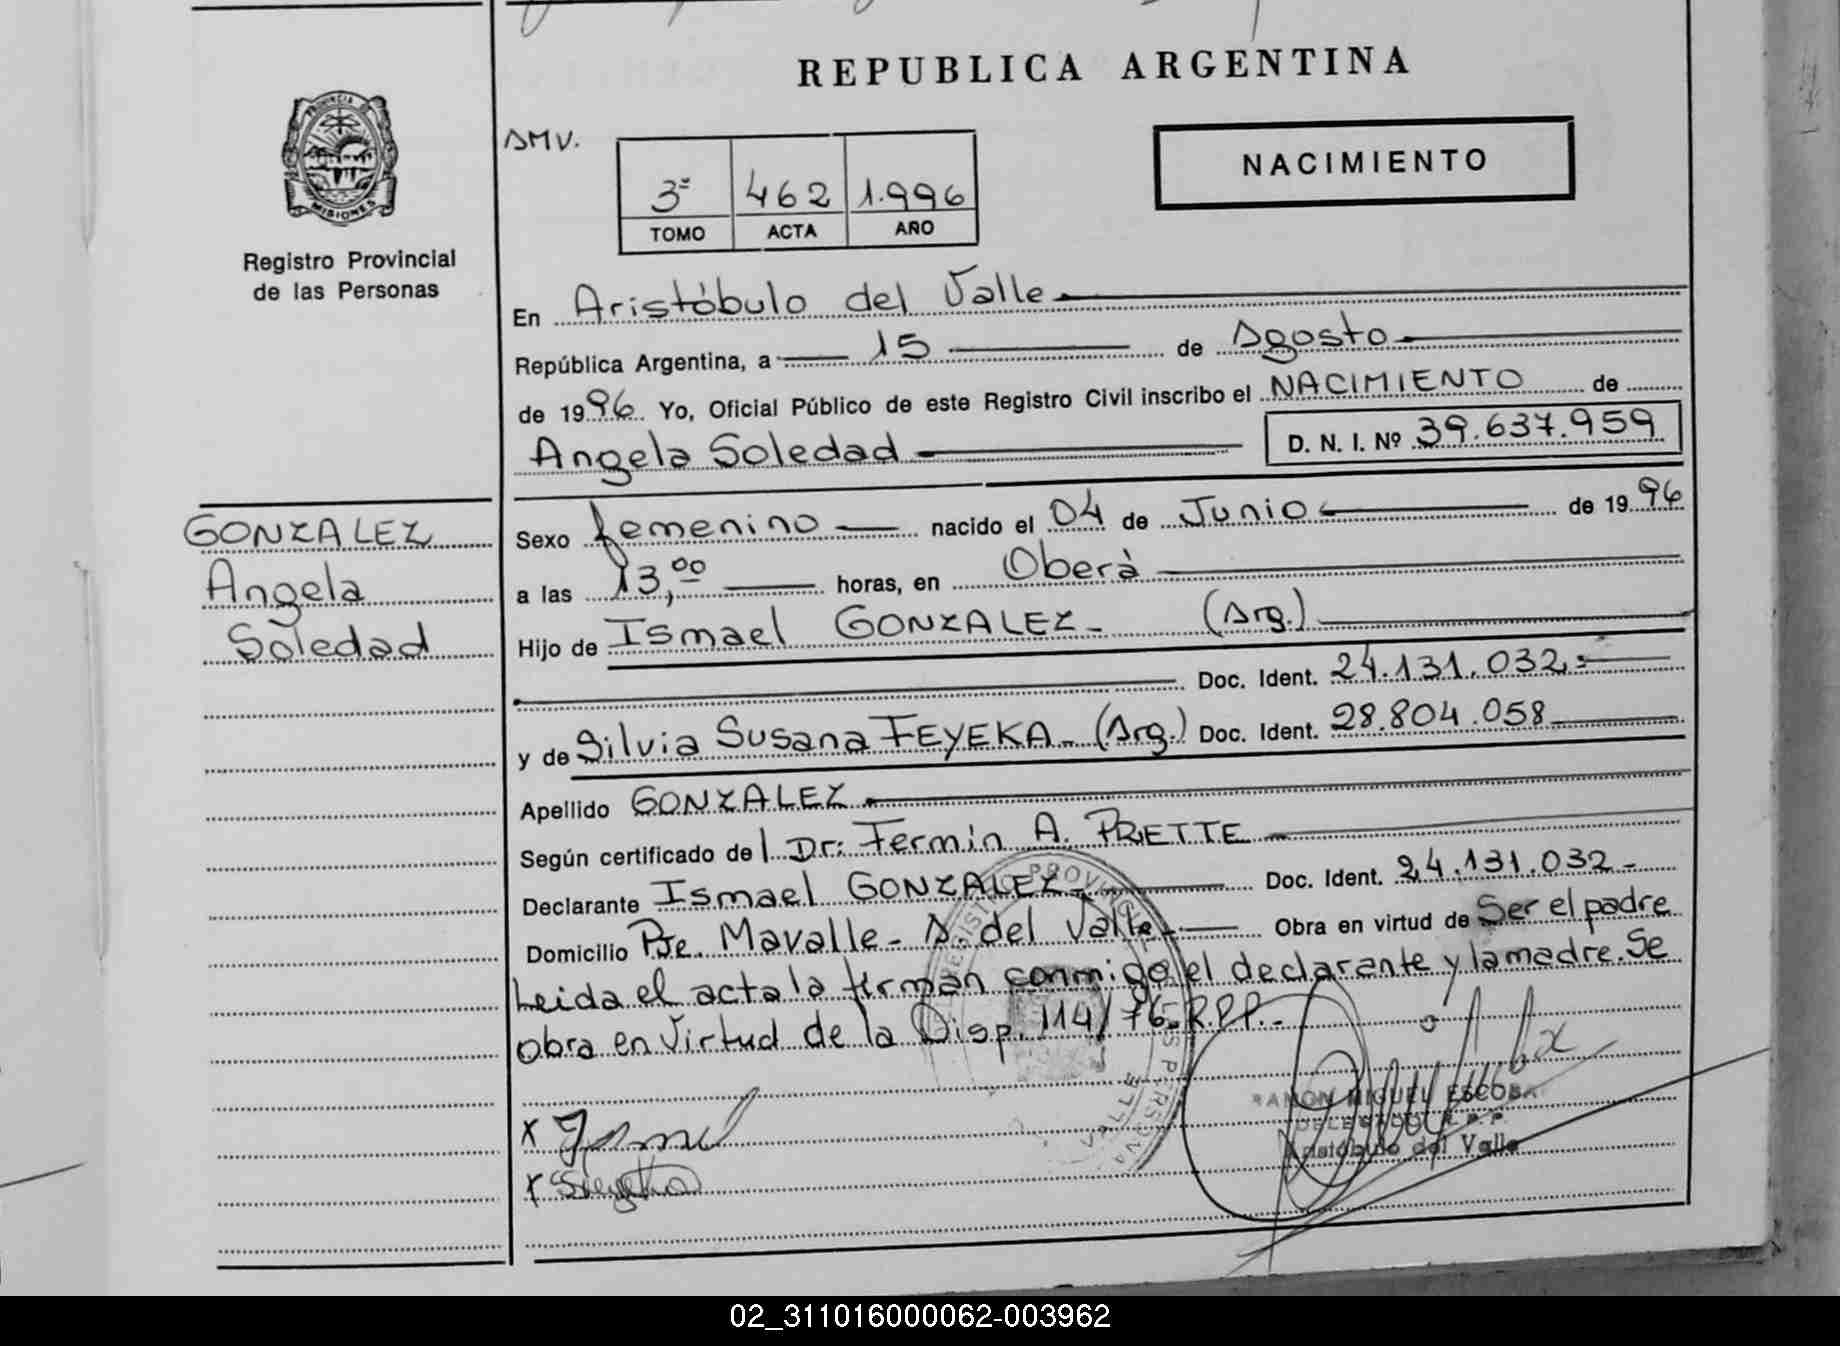 REPUBLICA ARGENTINA
PROVINCIA DE
MISIONES
Registro Provincial
de las Personas
AMV.
3º 462 1.996
TOMO ACTA AÑO
NACIMIENTO
En Aristóbulo del Valle
República Argentina, a 15 de Agosto
de 1996 Yo, Oficial Público de este Registro Civil inscribo el NACIMIENTO de
Angela Soledad D. N. I. Nº 39.637.959
GONZALEZ
Angela
Soledad
Sexo femenino nacido el 04 de Junio de 1996
a las 13,00 horas, en Oberá
Hijo de Ismael GONZALEZ- (Arg.)
Doc. Ident. 24.131.032.-
y de Silvia Susana FEYEKA- (Arg.) Doc. Ident. 28.804.058
Apellido GONZALEZ
Según certificado del Dr: Fermín A. PRETTE
Declarante Ismael GONZALEZ- Doc. Ident. 24.131.032-
Domicilio Pje. Mavalle- A. del Valle- Obra en virtud de Ser el padre
Leida el acta la firman conmigo el declarante y la madre. Se
obra en Virtud de la Disp. 114/76-R.P.P.-
RAMON MIGUEL ESCOBA
DELEGADO R.P.P.
Aristóbulo del Valle
X
X
02_311016000062-003962